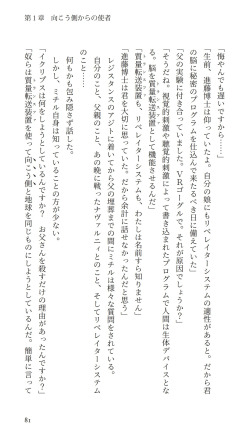 第1章　向こう側からの使者
「悔やんでも遅いですから……」
「生前、進藤博士は仰っていたよ。自分の娘にもリペレイターシステムの適性があると。だから君
の脳に秘密のプログラムを仕込んで来たるべき日に備えていた」
「父の実験に付き合っていました。VRゴーグルで。それが原因でしょうか？」
「そうだね。視覚的刺激や聴覚的刺激によって書き込まれたプログラムで人間は生体デバイスとな
る。脳を質量転送装置として機能させるんだ」
「質量転送装置も、リペレイターシステムも、わたしは名前すら知りません」
「進藤博士は君を大切に思っていた。だから余計に話せなかったんだと思う」
レジスタンスのアジトに着いてから父の埋葬までの間にミチルは様々な質問をされている。
自分のこと、父親のこと、あの晩に戦ったオヴァルニィとのこと、そしてリペレイターシステム
のこと……。
何もかも包み隠さず話した。
しかし、ミチル自身は知っていることの方が少ない。
「イクリプスは何をしようとしているんですか？　お父さんを殺すだけの理由があったんですか？」
「奴らは質量転送装置を使って向こう側と地球を同じものにしようとしているんだ。簡単に言って
81